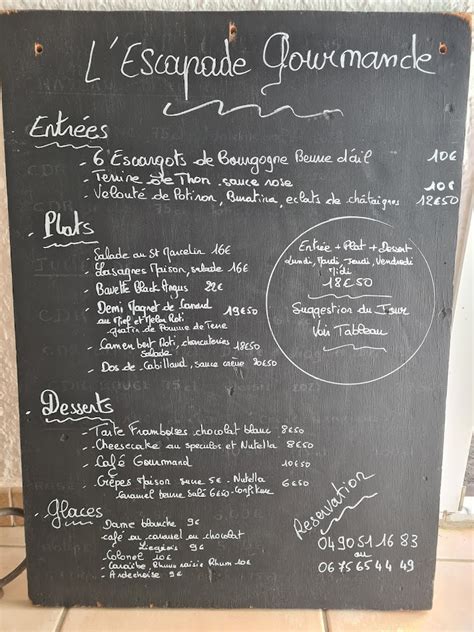 L'Escapade Gourmande
Entrées
- 6 Escargots de Bourgogne Beurre d'ail 10€
- Terrine de Thon sauce rose 10€
- Velouté de Potiron, Burratina, eclats de châtaignes 12€50
Plats
- Salade au St Marcelin 16€
- Lasagnes Maison, salade 16€
- Bavette Black Angus 22€
- Demi Magret de Canard 19€50
au Miel et Melon Roti
Gratin de Pomme de Terre
- Camembert Roti, charcuteries 18€50
salade
- Dos de Cabillaud, sauce crème 20€50
Entrée + Plat + Dessert
Lundi, Mardi Jeudi, Vendredi
Midi
18€50
Suggestion du Jour
Voir Tableau
Desserts
- Tarte Framboises chocolat blanc 8€50
- Cheesecake au speculos et Nutella 8€50
- Café Gourmand 10€50
- Crêpes Maison sucre 5€ - Nutella
Caramel beurre salé 6€50 - Confiture
Glaces
- Dame blanche 9€
- café ou caramel ou chocolat
Liegeois 9€
- Colonel 10€
- Caraïbe, Rhum raisin Rhum 10€
- Ardechoise 9€
Reservation
04 90 51 16 83
ou
06 75 65 44 49